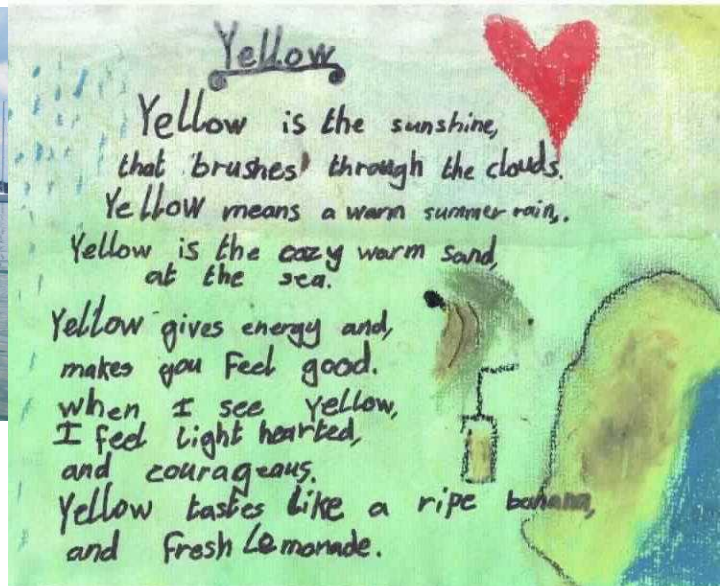 Yellow
Yellow is the sunshine,
that 'brushes' through the clouds.
Yellow means a warm summer rain,.
Yellow is the cozy warm sand,
at the sea.
Yellow gives energy and,
makes you Feel good.
when I see Yellow,
I feel light hearted,
and courageous.
Yellow tastes like a ripe banana,
and fresh Lemonade.